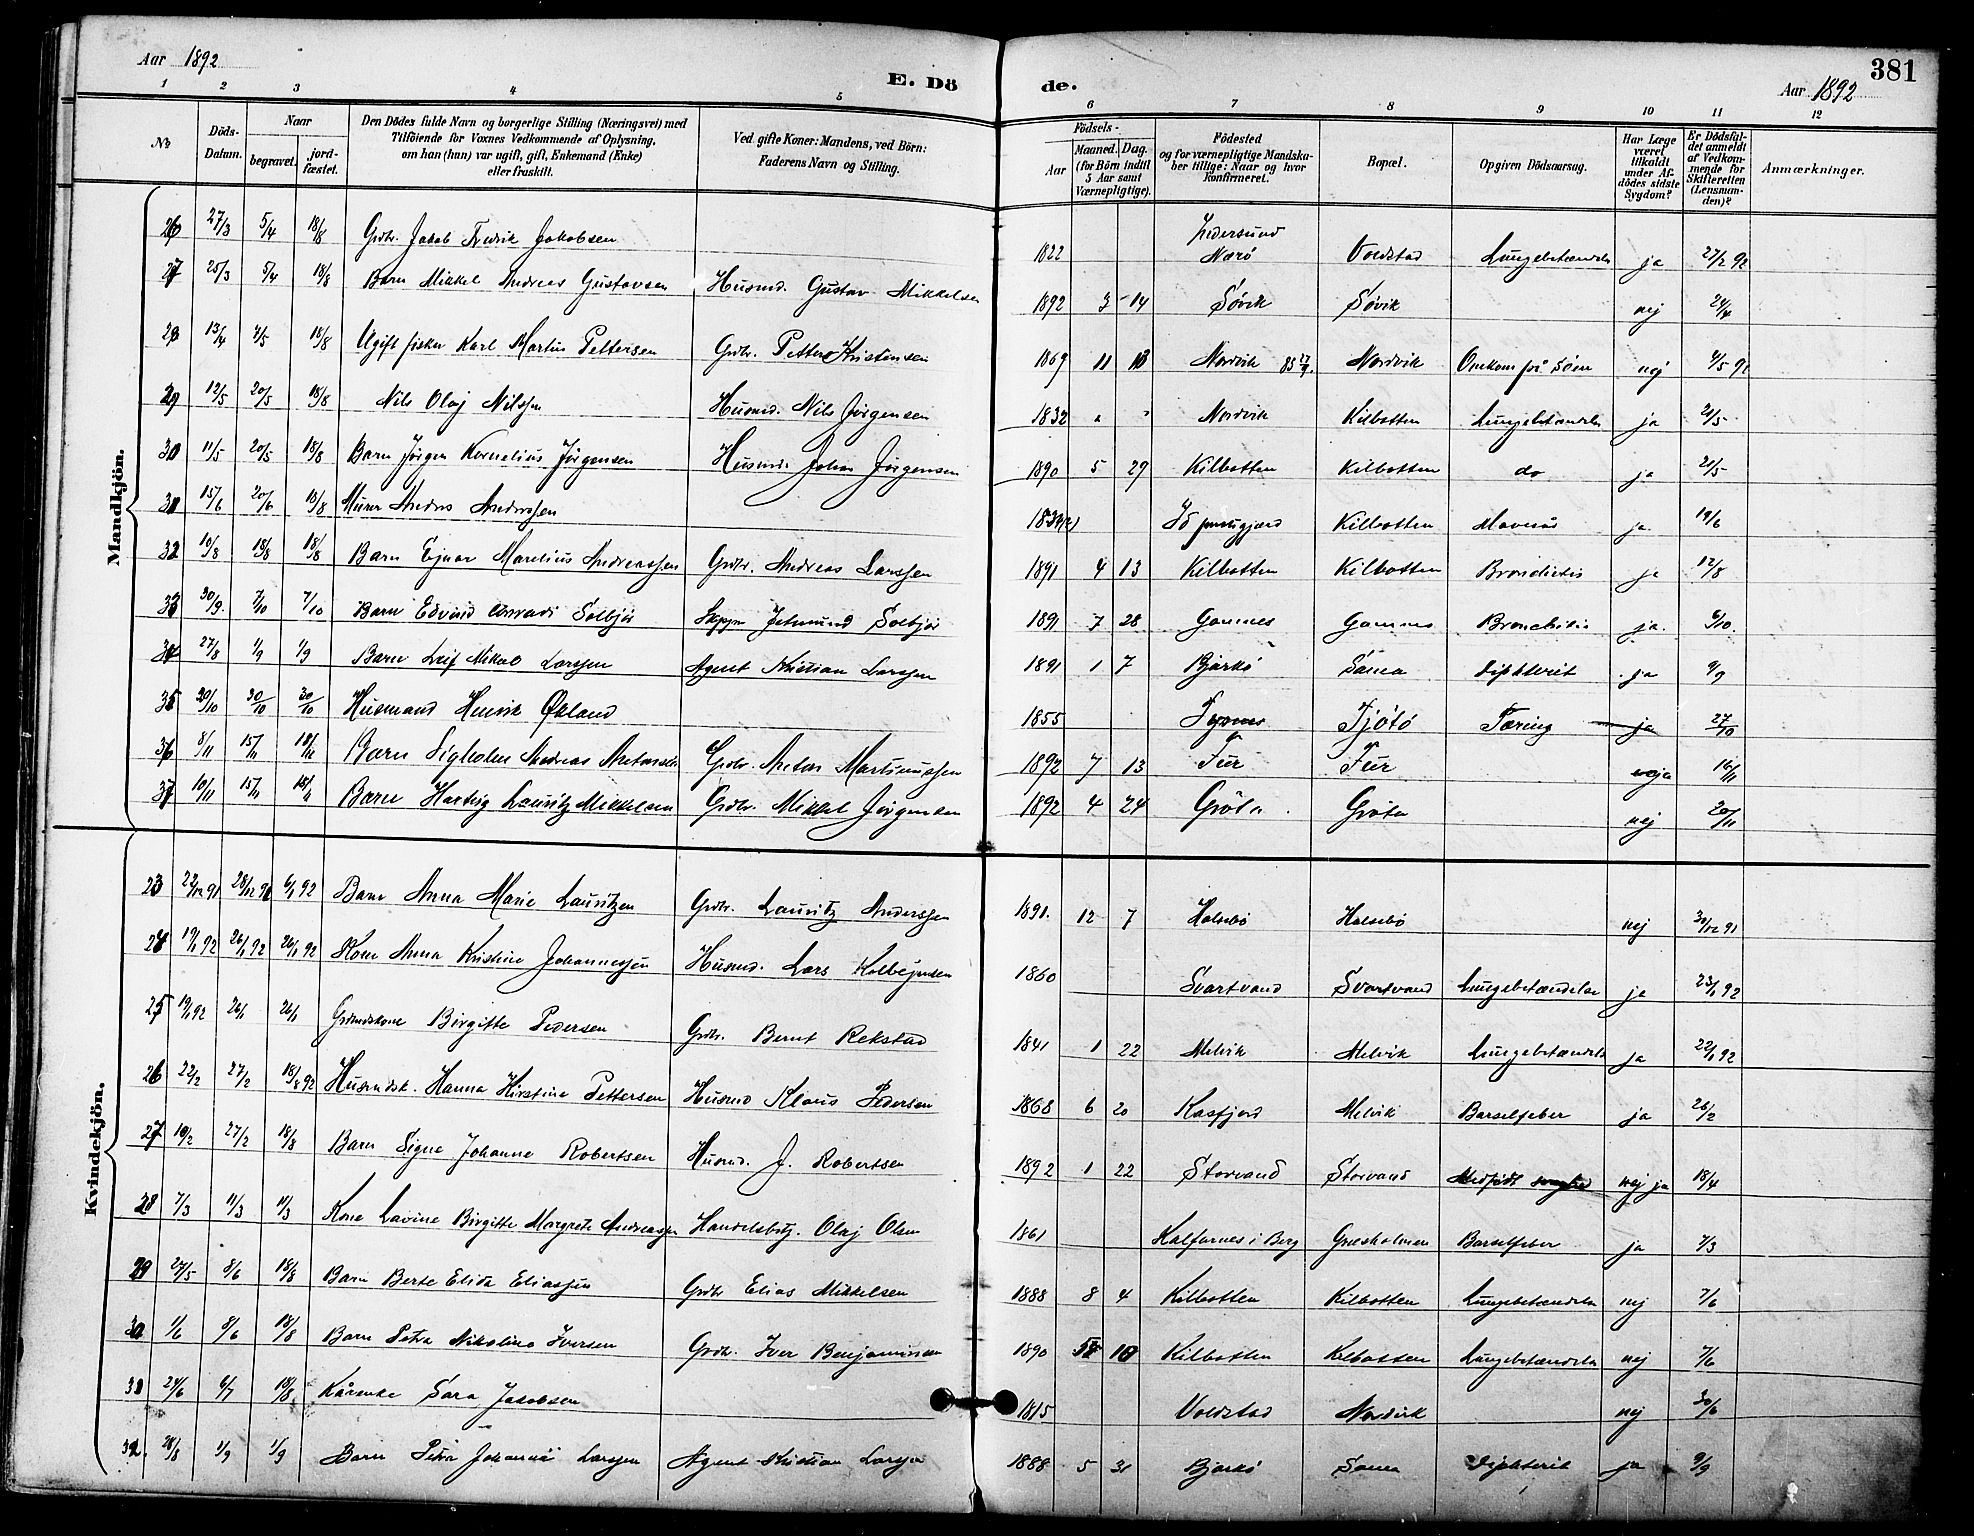 Aar 1892
E. Dö
de.
Aar 1892
381
1 2 3 4 5 6 7 8 9 10 11 12
No
Döds-Datum.
Naar
begravet.
jord-fæstet.
Den Dödes fulde Navn og borgerlige Stilling (Næringsvei) med
Tilföiende for Voxnes Vedkommende af Oplysning,
om han (hun) var ugift, gift, Enkemand (Enke)
eller fraskilt.
Ved gifte Koner: Mandens, ved Börn:
Faderens Navn og Stilling.
Födsels-
Aar
Maaned. Dag.
(for Börn indtil
5 Aar samt
Værnepligtige).
Födested
og for værnepligtige Mandska-
ber tillige: Naar og hvor
konfirmeret.
Bopæl.
Opgiven Dödsaarsag.
Har Læge
været
tilkaldt
under Af-
dödes sidste
Sygdom?
Er Dödsfal-
det anmeldt
af Vedkom-
mende for
Skifteretten
(Lensman-
den)?
Anmærkninger.
Mandkjön.
26 27/3 5/4 18/8 Grdbr. Jakob Fredrik Jakobsen 1822 Nærö Voldstad Lungebetændelse ja
27 25/3 5/4 18/8 Barn Mikkel Andreas Gustavsen Husmd. Gustav Mikkelsen 1892 3 14 Søvik Søvik nej 24/4
28 13/4 4/5 18/8 Ugift fisker Karl Martin Pettersen Grdbr. Petter Kristensen 1869 11 Nordvik Nordvik Omkom på Søen nej
29 12/5 20/5 18/8 Nils Olaj Nilssen Husmd. Nils Jørgensen 1832 " " Nordvik Kilbotten Lungebetændelse ja 21/5
30 11/5 20/5 18/8 Barn Jörgen Kornelius Jörgensen Husmd. Johan Jørgensen 1890 5 29 Kilbotten Kilbotten do ja 21/5
31 15/6 20/6 18/8 Murer Anders Anderssen Kilbotten Mavesår ja 19/6
32 10/8 18/8 18/8 Barn Ejnar Marelius Andreassen Grdbr. Andreas Larssen 1891 4 13 Kilbotten Kilbotten ja 12/8
33 30/9 7/10 7/10 Barn Edvard Conradi Solbjør Solbjør 1891 7 28 Gamnes Gamnes Bronchitis ja 6/10
34 27/8 1/9 1/9 Barn Leif Mikal Larssen Agent Kristian Larssen 1891 1 7 Bjarkö Sama Diphterit ja 9/9
35 20/10 30/10 30/10 Husmand Henrik Økland 1855 Tjøtø Tæring ja 27/10
36 8/11 15/11 18/11 Barn Andreas Antonsen Grdbr. Anton Martinussen 1892 7 13 Fur Fur ja 16/11
37 10/11 15/11 15/11 Barn Hartvig Lauritz Mikkelsen Grdbr. Mikkel Jørgensen 1892 4 24 Gröta Gröta nej 20/11
Kvindekjön.
23 22/12 91 28/12 91 6/1 92 Barn Anna Marie Lauritzen Grdbr. Lauritz Anderssen 1891. 12 7 Halsebö Halsebö nej 30/12 91
24 19/1 92 26/1 92 26/1 92 Kone Anna Kristine Johannessen Husmd. Lars Kolbejnsen 1860 Svartvand Svartvand Lungebetændelse ja 23/1 92
25 19/1 92 26/1 26/1 Grdmdskone Birgitte Pedersen Grdbr. Bernt Rekstad 1841 1 22 Melvik Melvik Lungebetændelse ja 22/1 92
26 22/2 27/2 18/8 92 Husmdsk. Hanna Kirstine Pettersen Husmd Klaus Pedersen 1868 6 20 Kasfjord Melvik Barselfeber ja 26/2
27 19/2 27/2 18/8 Barn Signe Johanne Robertsen Husmd. J. Robertsen 1892 1 22 Storvand Storvand Medfödt svaghed nej ja 18/4
28 7/3 11/3 11/3 Kone Lavine Birgitte Margrete Andreassen Handelsbtj. Olaj Olsen 1861 Kalfarnes i Berg Gnesholmen Barselfeber ja 7/3
29 27/5 8/6 18/8 Barn Berte Elida Eliassen Grdbr Elias Mikkelsen 1888 8 4 Kilbotten Kilbotten Lungebetændelse nej 7/6
30 1/6 8/6 18/8 Barn Petra Nikoline Iversen Grdbr. Iver Benjaminsen 1890 Kilbotten Kilbotten Lungebetændelse nej 7/6
31 24/6 6/7 18/8 Kårenke Sara Jakobsen 1815 Voldstad Nordvik nej 30/6
32. 28/8 1/9 1/9 Barn Petra Johanna Larssen Agent Kristian Larssen 1888 5 31 Bjarkö Sama Diphterit ja 9/9